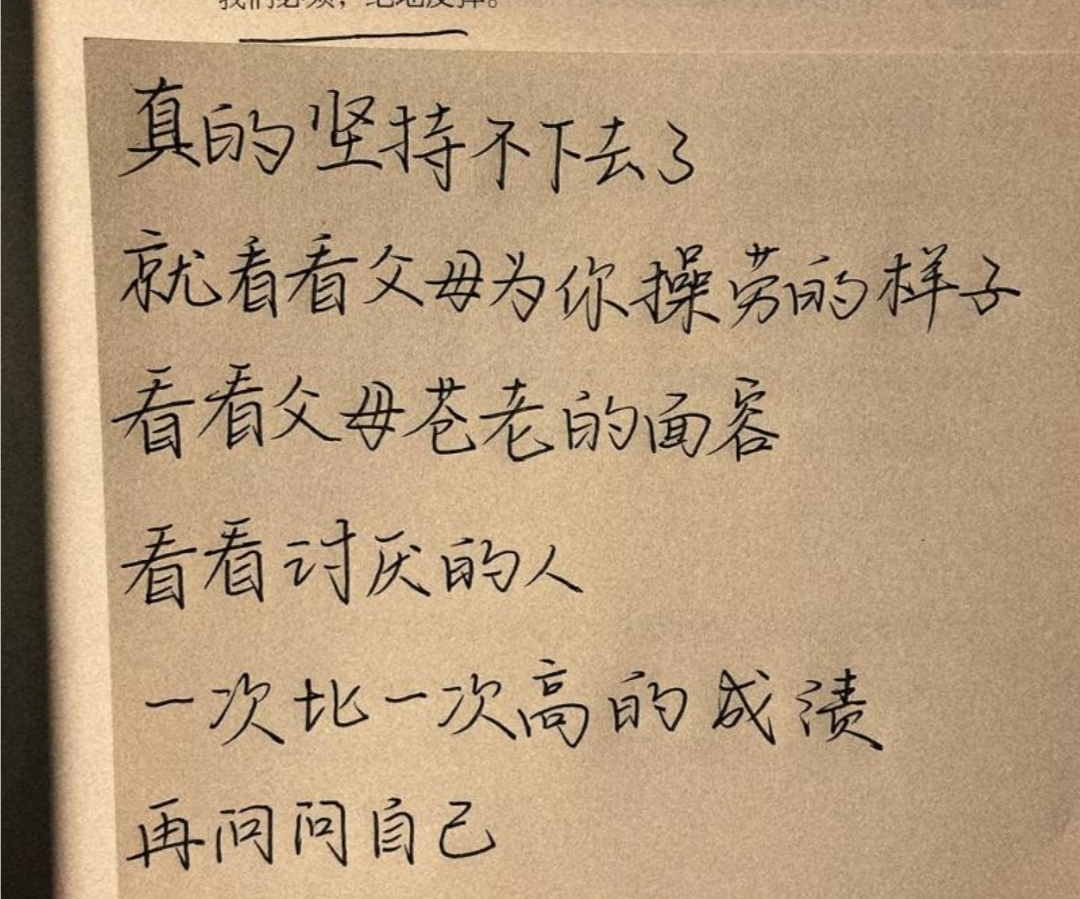 我们必须，绝地反弹。
真的坚持不下去了
就看看父母为你操劳的样子
看看父母苍老的面容
看看讨厌的人
一次比一次高的成渍
再问问自己